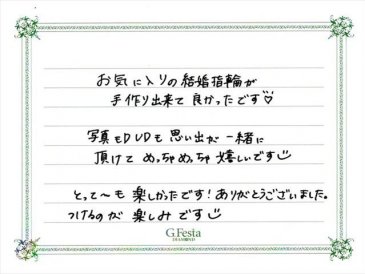 お気に入りの結婚指輪が
手作り出来て 良かったです♡
写真もDVDも 思い出が 一緒に
頂けて めっちゃめっちゃ 嬉しいです
とって〜も 楽しかったです！ありがとうございました。
つけるのが 楽しみです
G.Festa
DIAMOND